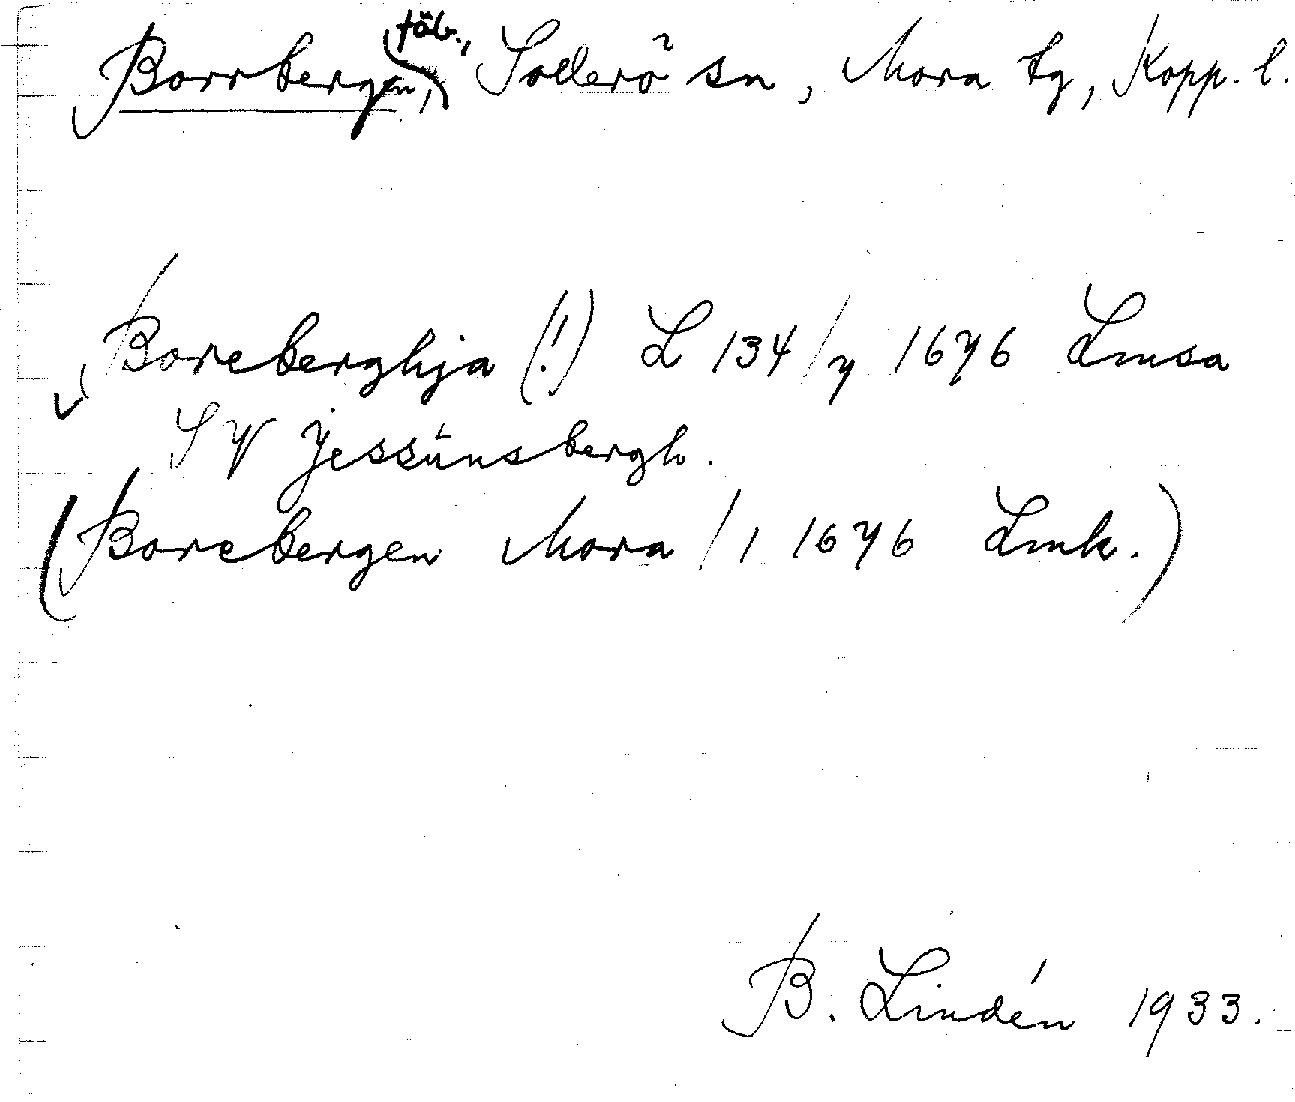 Borrbergen, fäb., Sollerö sn, Mora tg, Kopp. l.
Boreberghja (!) L 134/7 1676 Lmsa
SV Jessünsbergh.
(Borebergen Mora /1 1676 Lmk.)
B. Lindén 1933.